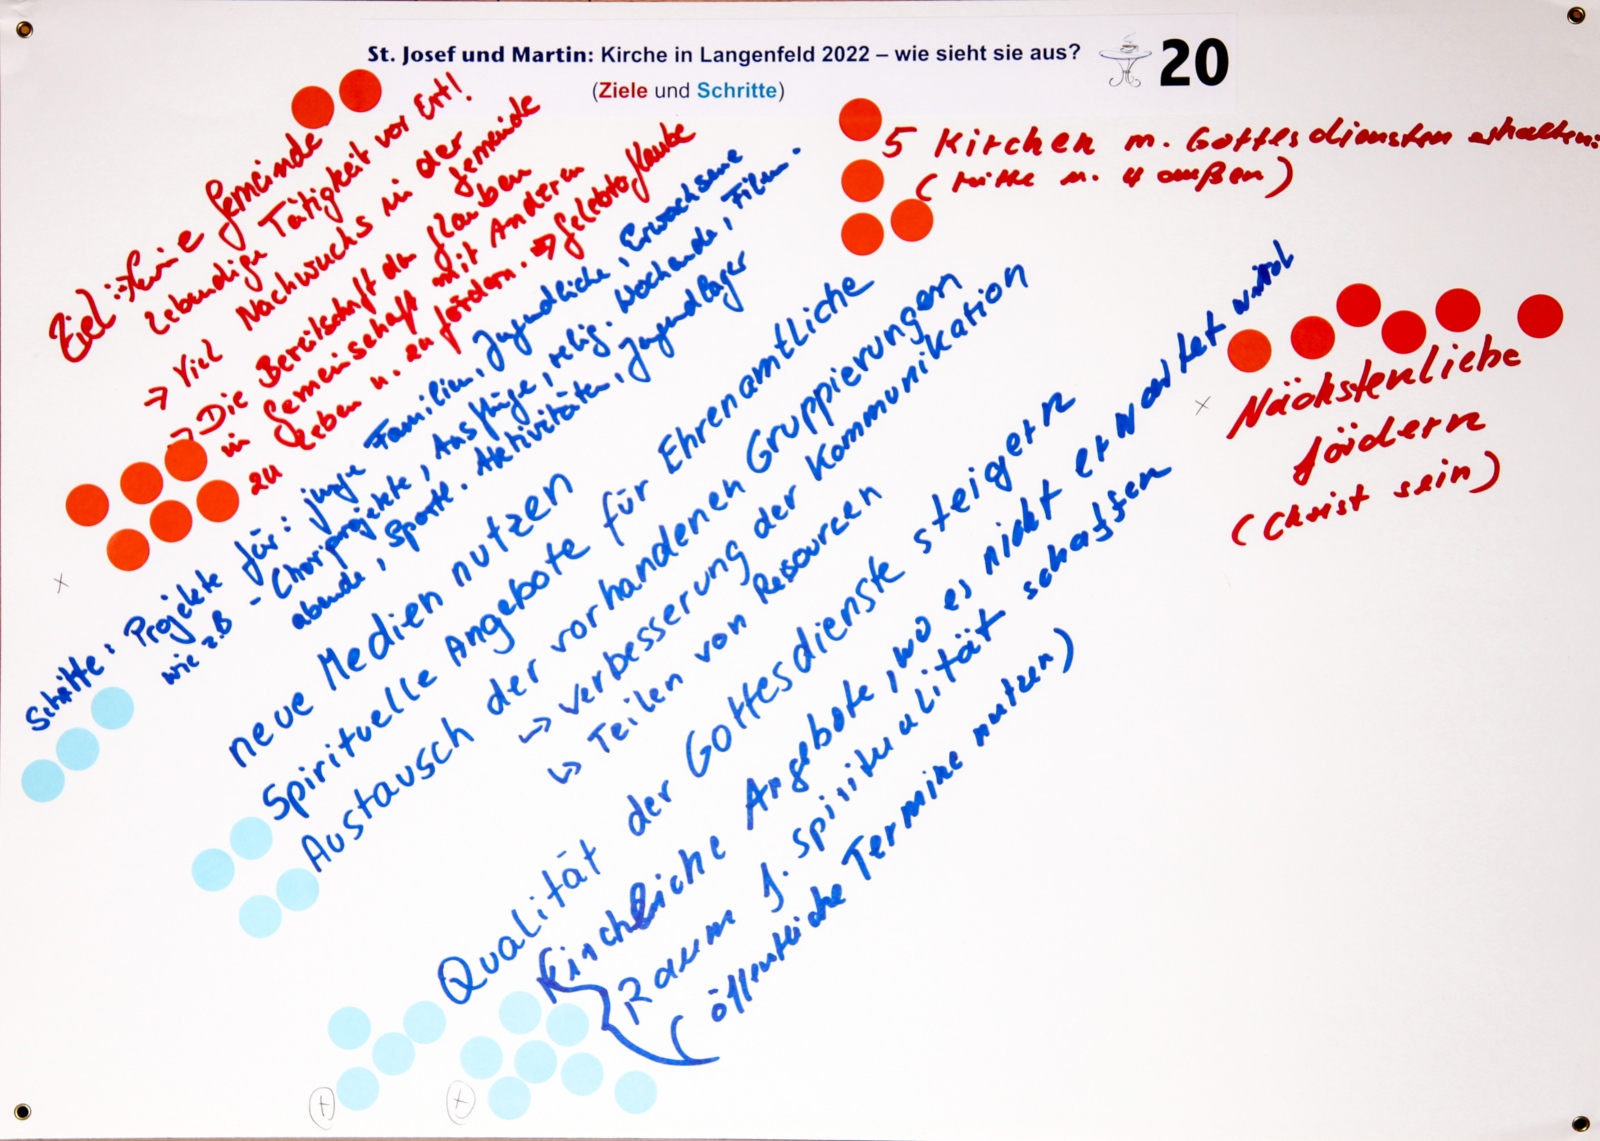 St. Josef und Martin: Kirche in Langenfeld 2022 – wie sieht sie aus?
(Ziele und Schritte)
20
Ziel: Gemeinde
Lebendige Tätigkeit vor Ort!
→ Viel Nachwuchs in der Gemeinde
→ Die Bereitschaft den Glauben
in Gemeinschaft mit Anderen
zu leben u. zu fördern. → gelebter Glaube
5 Kirchen m. Gottesdiensten erhalten:
(Mitte u. 4 außen)
Nächstenliebe
fördern
(Christ sein)
Schritte: Projekte für: junge Familien, Jugendliche, Erwachsene
wie z.B - Chorprojekte, Ausflüge, relig. Wochende, Filme.
abende, Sportl. Aktivitäten, Jugendlager
neue Medien nutzen
Spirituelle Angebote für Ehrenamtliche
Austausch der vorhandenen Gruppierungen
↳ Verbesserung der Kommunikation
↳ Teilen von Resourcen
Qualität der Gottesdienste steigern
Kirchliche Angebote, wo es nicht erwartet wird
Raum f. Spiritualität schaffen
(öffentliche Termine nutzen)